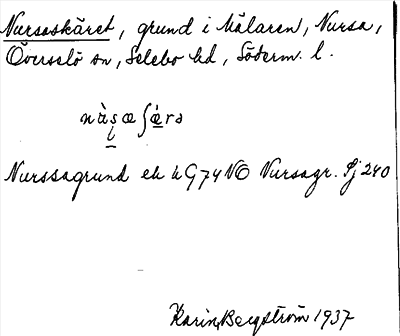 Nursaskäret, grund i Mälaren, Nursa,
Överselö sn, Selebo hd, Söderm. l.
Nurssagrund ek 4 G74 NO Nursagr. Sj 240
Karin Bergström 1937